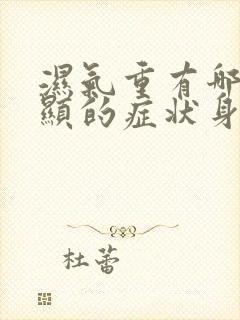 濕氣重有哪
顯的症狀身
杜蕾